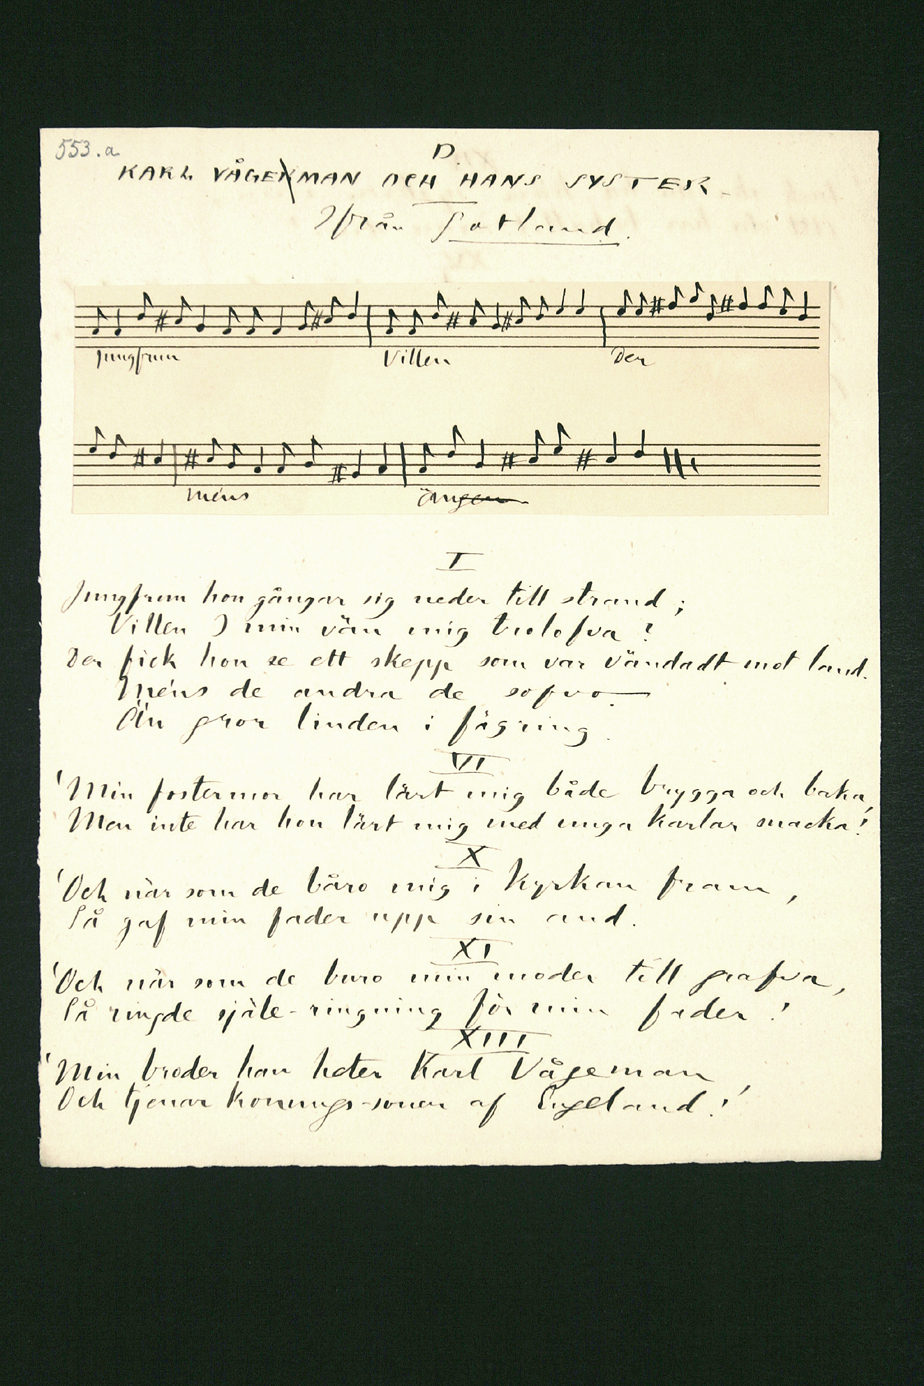 553.a
D.
KARL VÅGEMAN OCH HANS SYSTER
Ifrån Gotland.
Jungfrun Villen Der
Méns Än
I
Jungfrun hon gångar sig neder till strand;
Villen I min vän mig trolofva?
Der fick hon se ett skepp som var vändadt mot land.
Méns de andra de sofvo.
Än gror linden i fägring.
VI
'Min fostermor har lärt mig både brygga och baka,
Men inte har hon lärt mig med unga karlar snacka!'
X
'Och när som de båro mig i kyrkan fram,
Så gaf min fader upp sin and.
XI
'Och när som de buro min moder till grafva,
Så ringde själe-ringning för min fader!
XIII
'Min broder han heter Karl Vågeman
Och tjenar konungs-sonen af Engeland!'